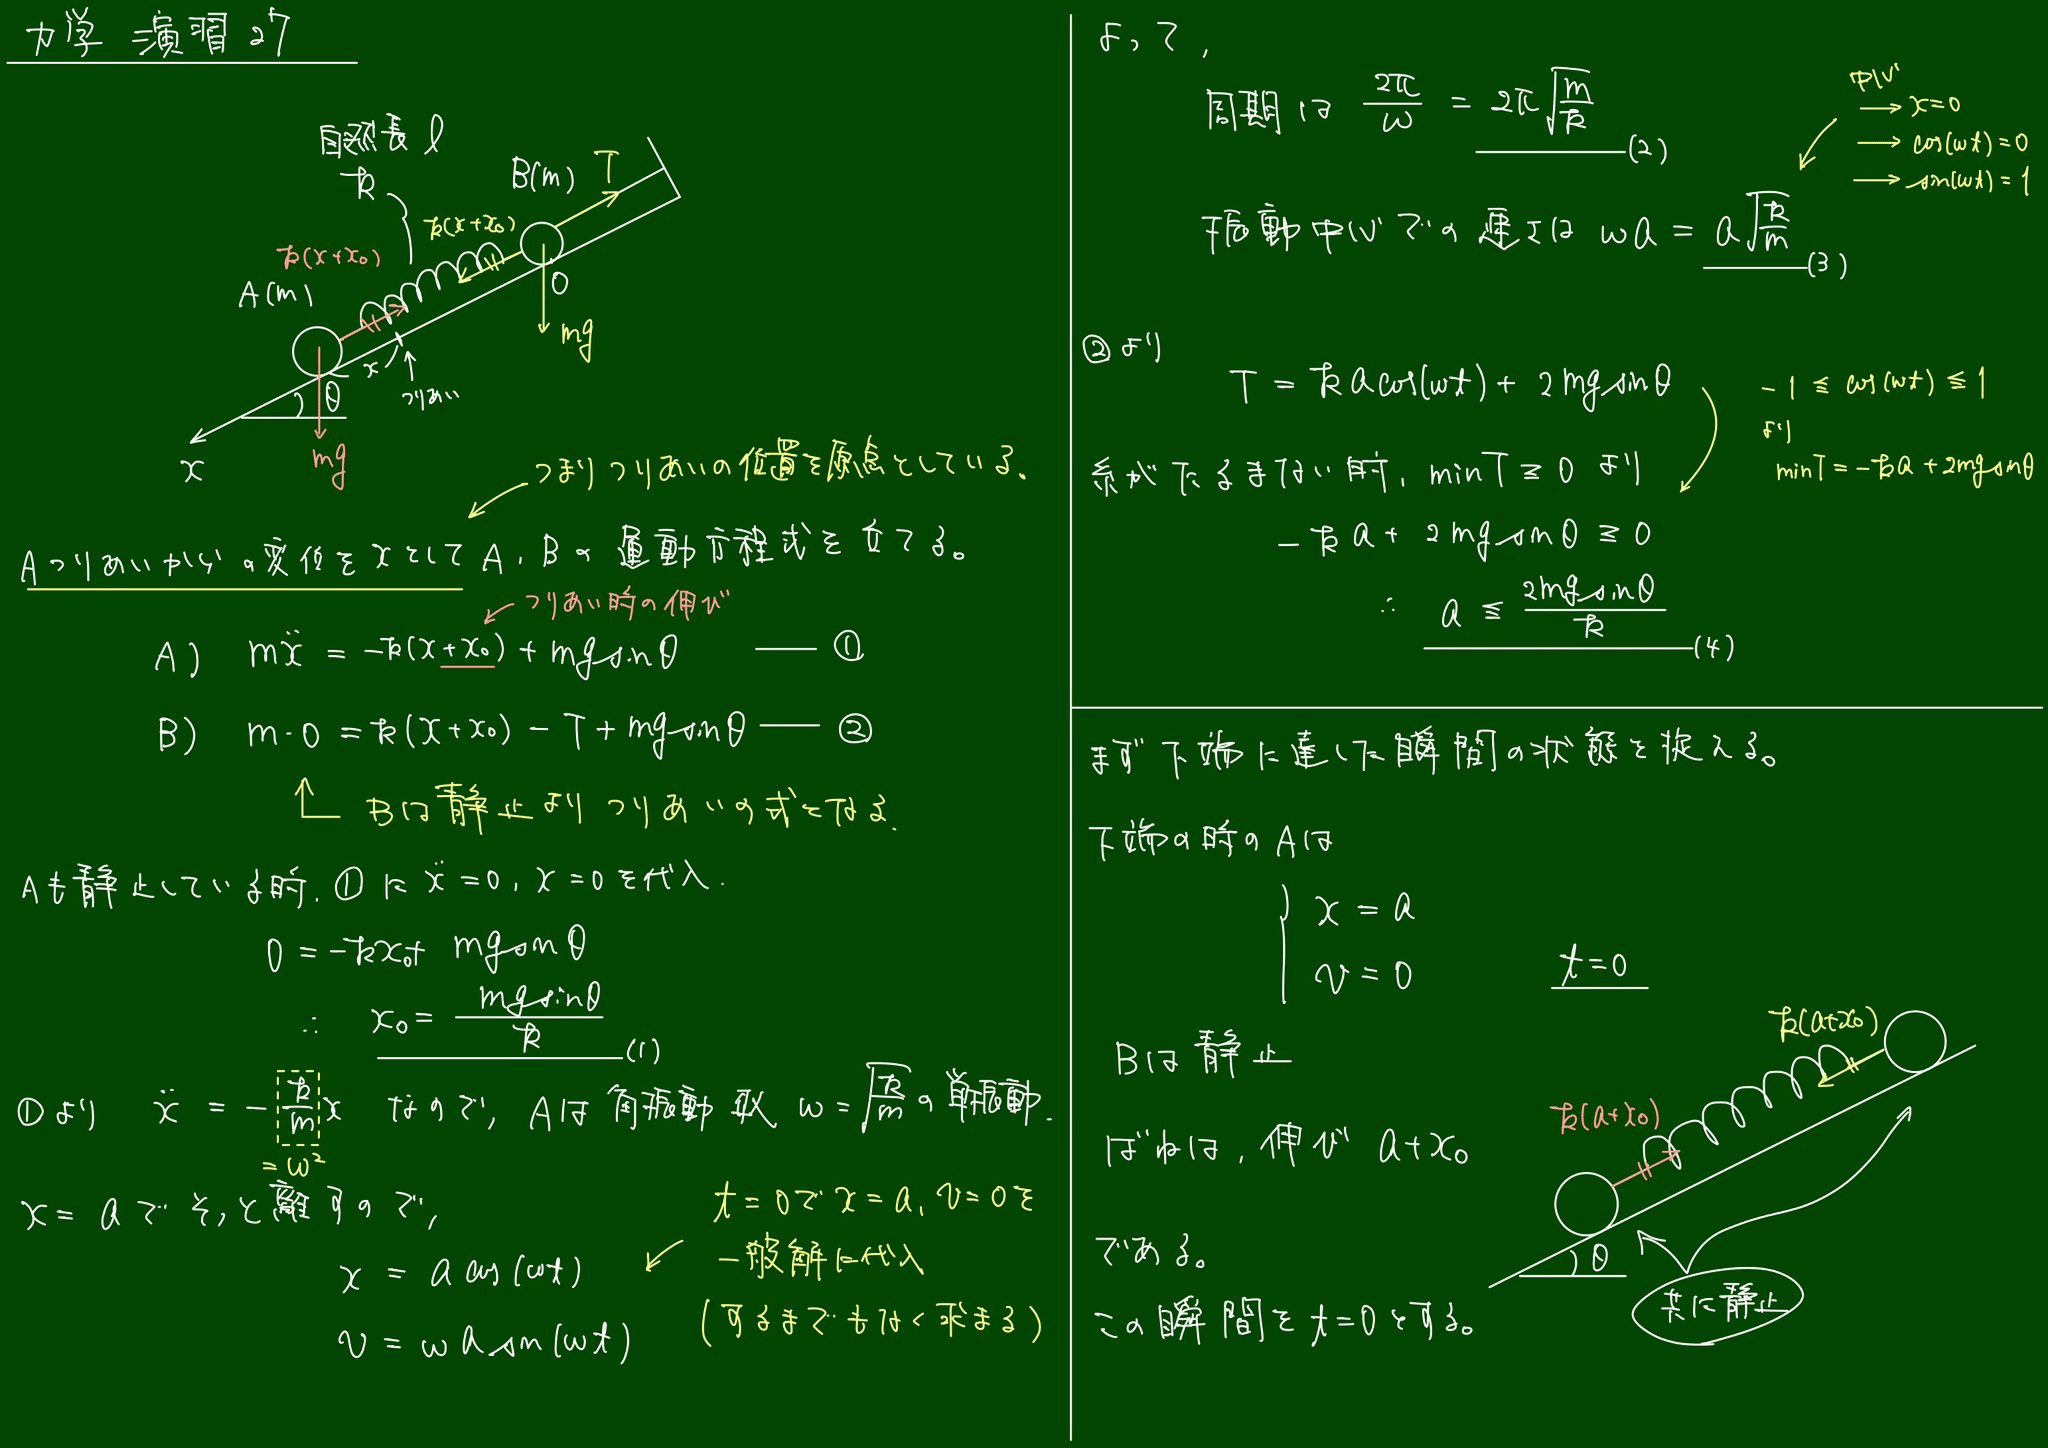 力学 演習 27
自然長 l
k
B(m)
T
k(x+x₀)
k(x+x₀)
A(m)
O
mg
x
つりあい
θ
mg
x
つまりつりあいの位置を原点としている。
Aつりあいからの変位をxとしてA, Bの運動方程式を立てる。
つりあい時の伸び
A) mẍ = -k(x+x₀) + mg sinθ ―― ①
B) m・0 = k(x+x₀) - T + mg sinθ ―― ②
Bは静止よりつりあいの式となる.
Aも静止している時. ①に ẍ=0, x=0を代入.
0 = -kx₀+ mg sinθ
∴ x₀ = mg sinθ/k (1)
①より ẍ = - k/m x なので, Aは角振動数 ω=√(k/m) の単振動.
= ω²
x = a でそっと離すので,
t=0で x=a, v=0を
一般解に代入
(するまでもなく求まる)
x = a cos(ωt)
v = ωa sin(ωt)
よって,
周期は 2π/ω = 2π√(m/k) (2)
中心
→ x=0
→ cos(ωt)=0
→ sin(ωt)=1
振動中心での速さは ωa = a√(k/m) (3)
②より
T = ka cos(ωt) + 2mg sinθ
-1 ≦ cos(ωt) ≦ 1
より
minT = -ka + 2mg sinθ
糸がたるまない時, minT ≧ 0 より
-ka + 2mg sinθ ≧ 0
∴ a ≦ 2mg sinθ/k (4)
まず下端に達した瞬間の状態を捉える。
下端の時のAは
x = a
v = 0
t=0
Bは静止
k(a+x₀)
k(a+x₀)
ばねは, 伸び a+x₀
である。
θ
共に静止
この瞬間をt=0とする。